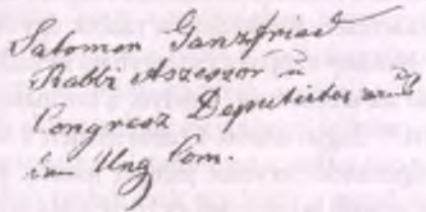 Salomon Ganzfried
Rabbi Aszeszor u
Congresz Deputirter
im Ung Com.